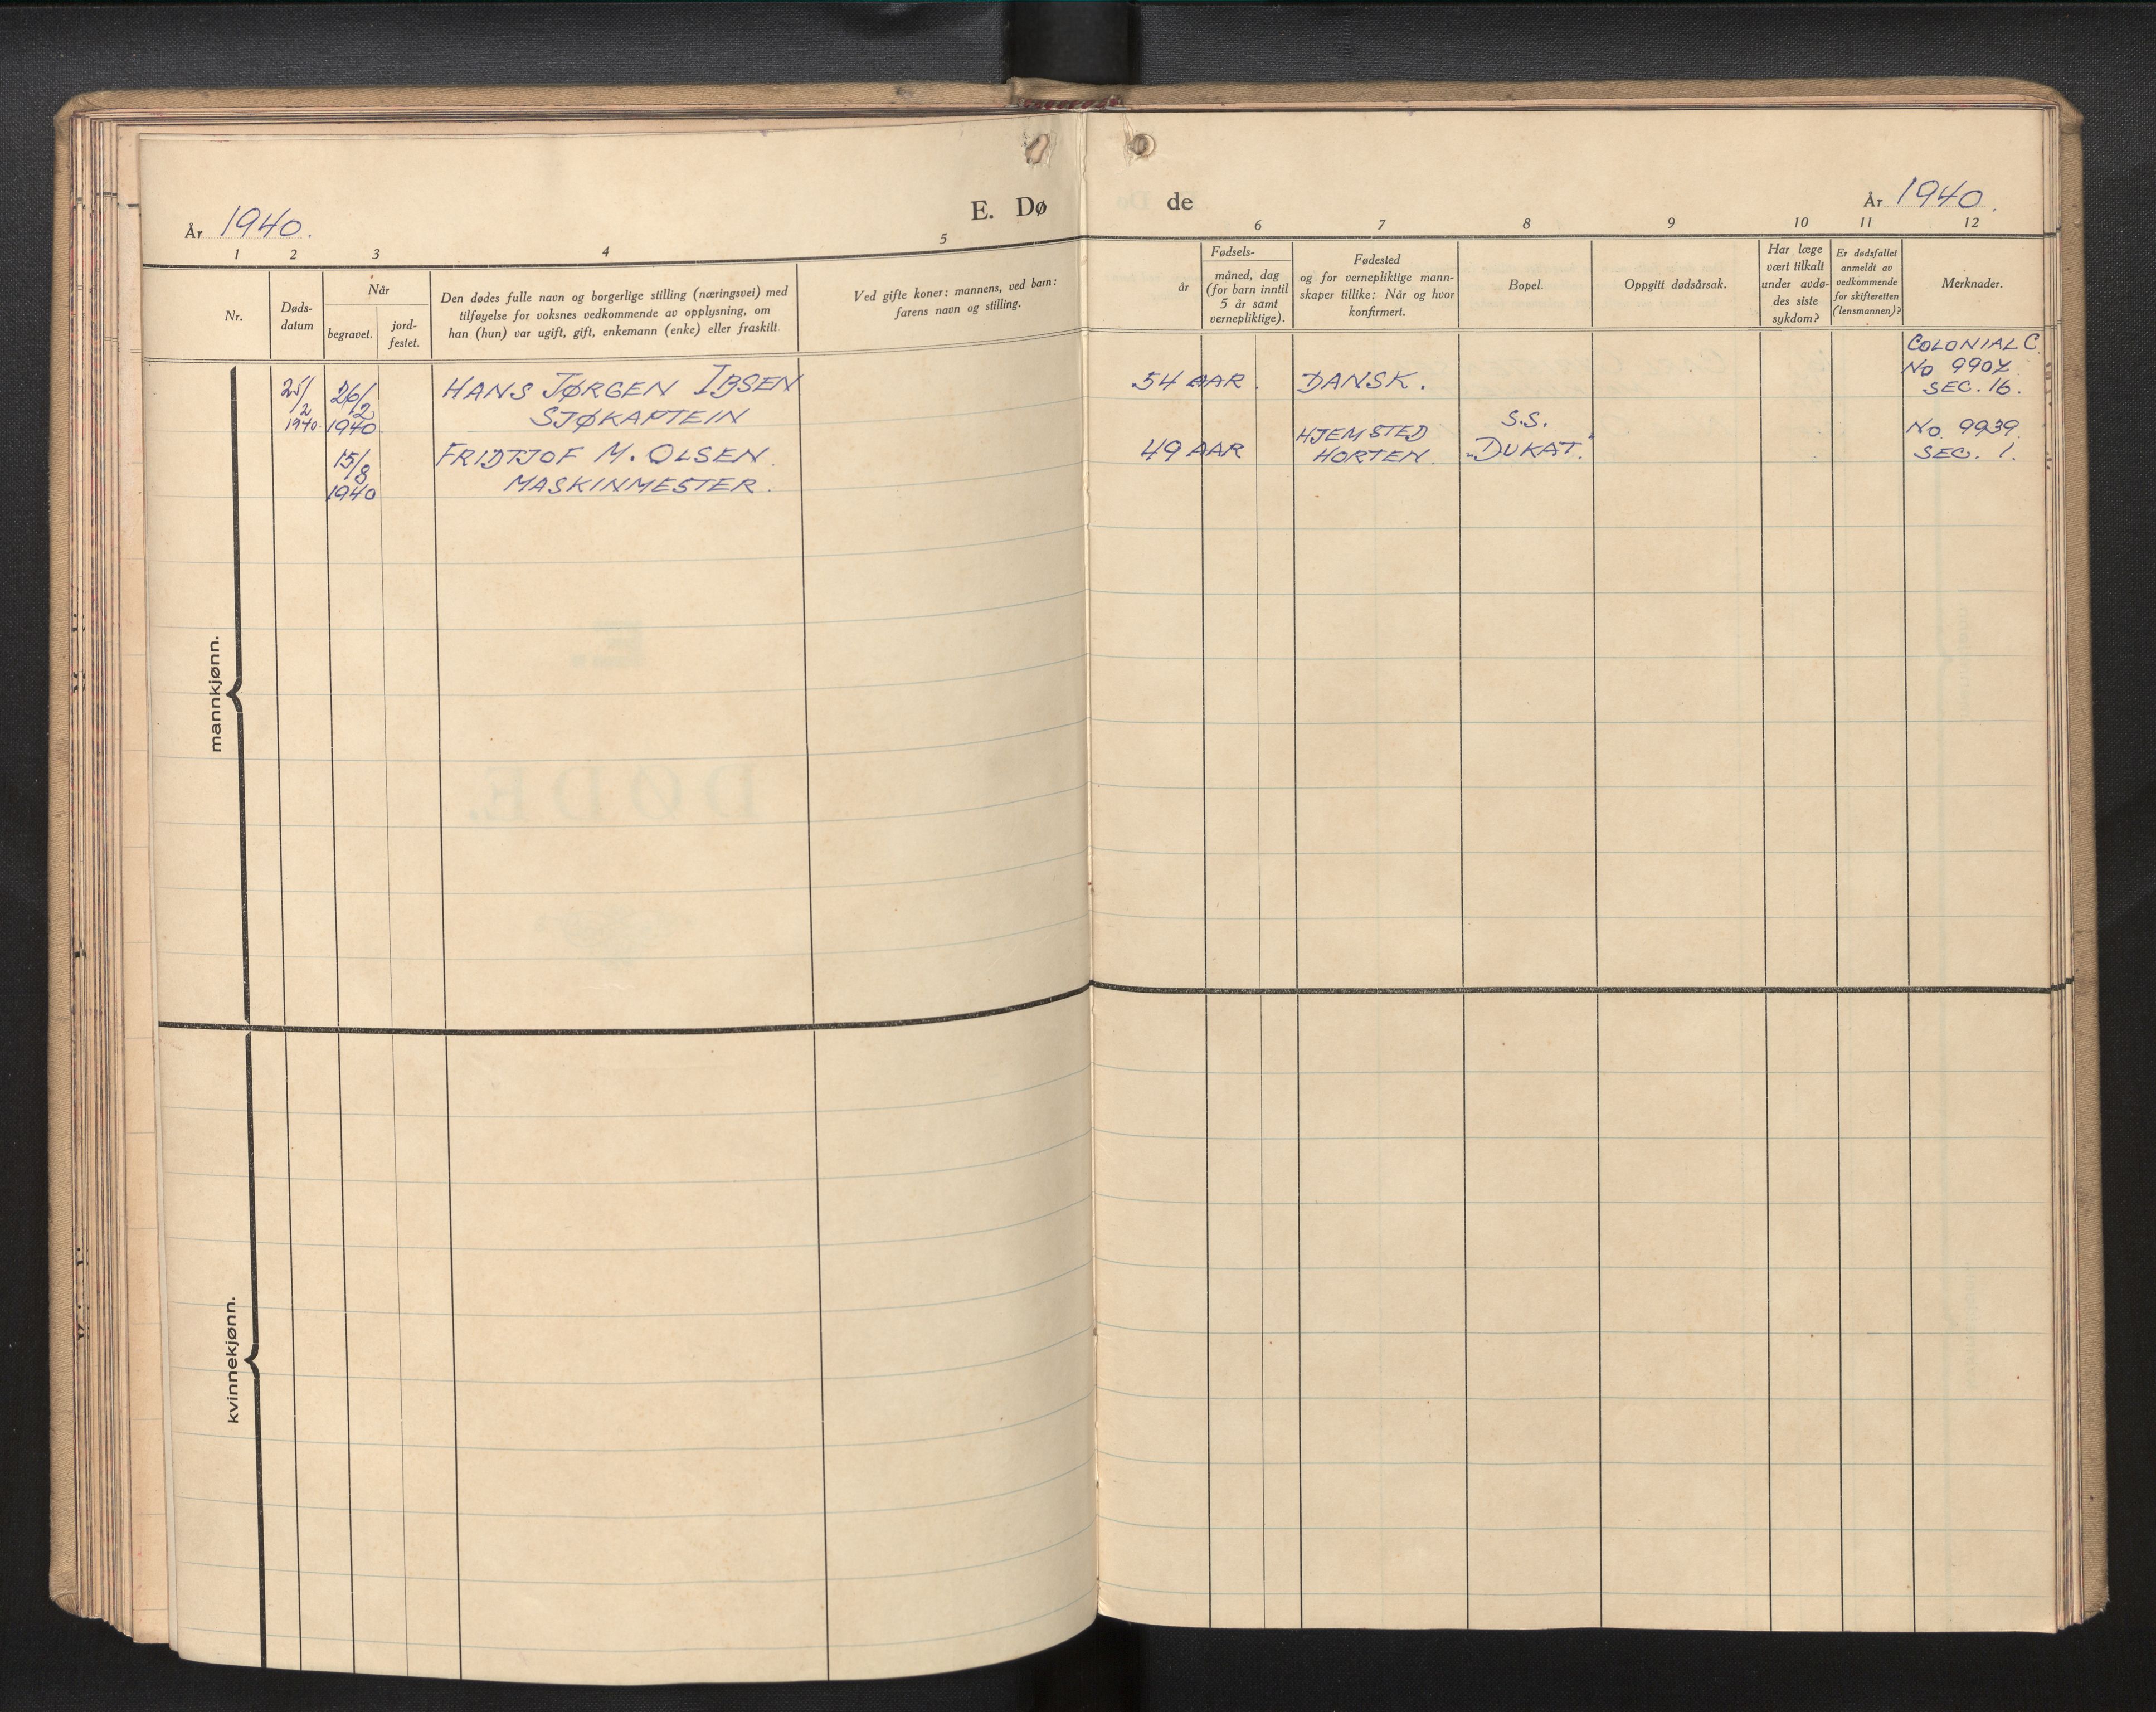 År 1940.
E. Dø
de
År 1940.
1 2 3 4 5
6 7 8 9 10 11 12
Nr.
Døds-
datum
Når
begravet.
jord-
festet.
Den dødes fulle navn og borgerlige stilling (næringsvei) med
tilføyelse for voksnes vedkommende av opplysning, om
han (hun) var ugift, gift, enkemann (enke) eller fraskilt.
Ved gifte koner: mannens, ved barn:
farens navn og stilling.
Fødsels-
år
måned, dag
(for barn inntil
5 år samt
vernepliktige).
Fødested
og for vernepliktige mann-
skaper tillike: Når og hvor
konfirmert.
Bopel.
Oppgitt dødsårsak.
Har læge
vært tilkalt
under avdø-
des siste
sykdom?
Er dødsfallet
anmeldt av
vedkommende
for skifteretten
(lensmannen)?
Merknader.
mannkjønn.
25/
2
1940.
26/
2
1940
HANS JØRGEN IBSEN
SJØKAPTEIN
54 AAR.
DANSK.
COLONIAL C.
No 9907.
SEC. 16.
15/
8
1940
FRIDTJOF M. OLSEN.
MASKINMESTER.
49 AAR
HJEMSTED
HORTEN.
S.S.
„DUKAT."
No. 9939.
SEC. 1.
kvinnekjønn.